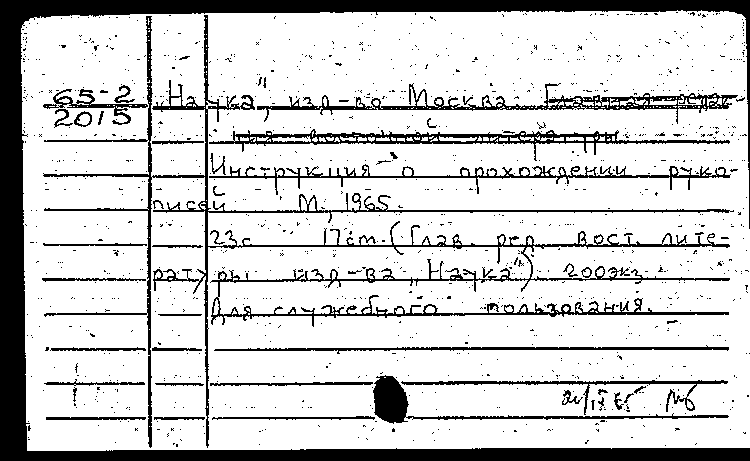 65-2
2015
„Наука", изд-во Москва. Главная редак-
ция восточной литературы.
Инструкция о прохождении руко-
писей М., 1965.
23с 17см. (Глав. ред. вост. лите-
ратуры изд-ва „Наука"). 200экз.
Для служебного пользования.